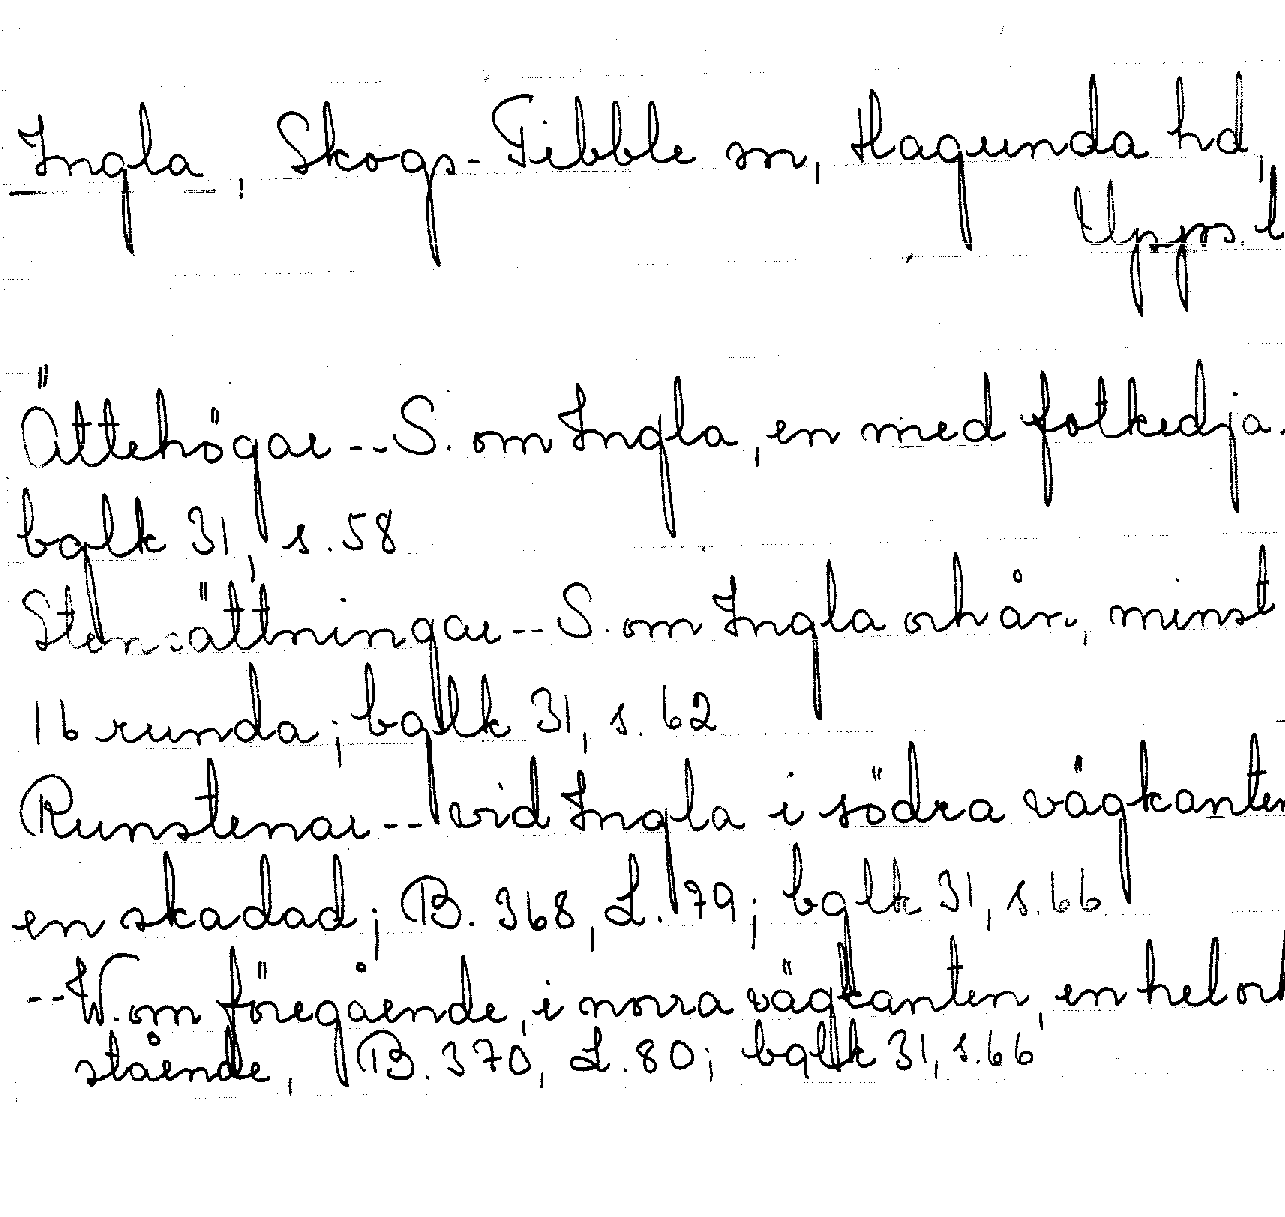 Ingla, Skogs-Tibble sn, Hagunda hd,
Upps. l
Ättehögar -- S. om Ingla, en med fotkedja.
bglk 31, s. 58
Stensättningar -- S. om Ingla och ån, minst
16 runda; bglk 31, s. 62
Runstenar -- vid Ingla i södra vägkanten
en skadad; B. 368, L. 79; bglk 31, s. 66
-- W. om föregående, i norra vägkanten, en hel och
stående, B. 370, L. 80; bglk 31, s. 66